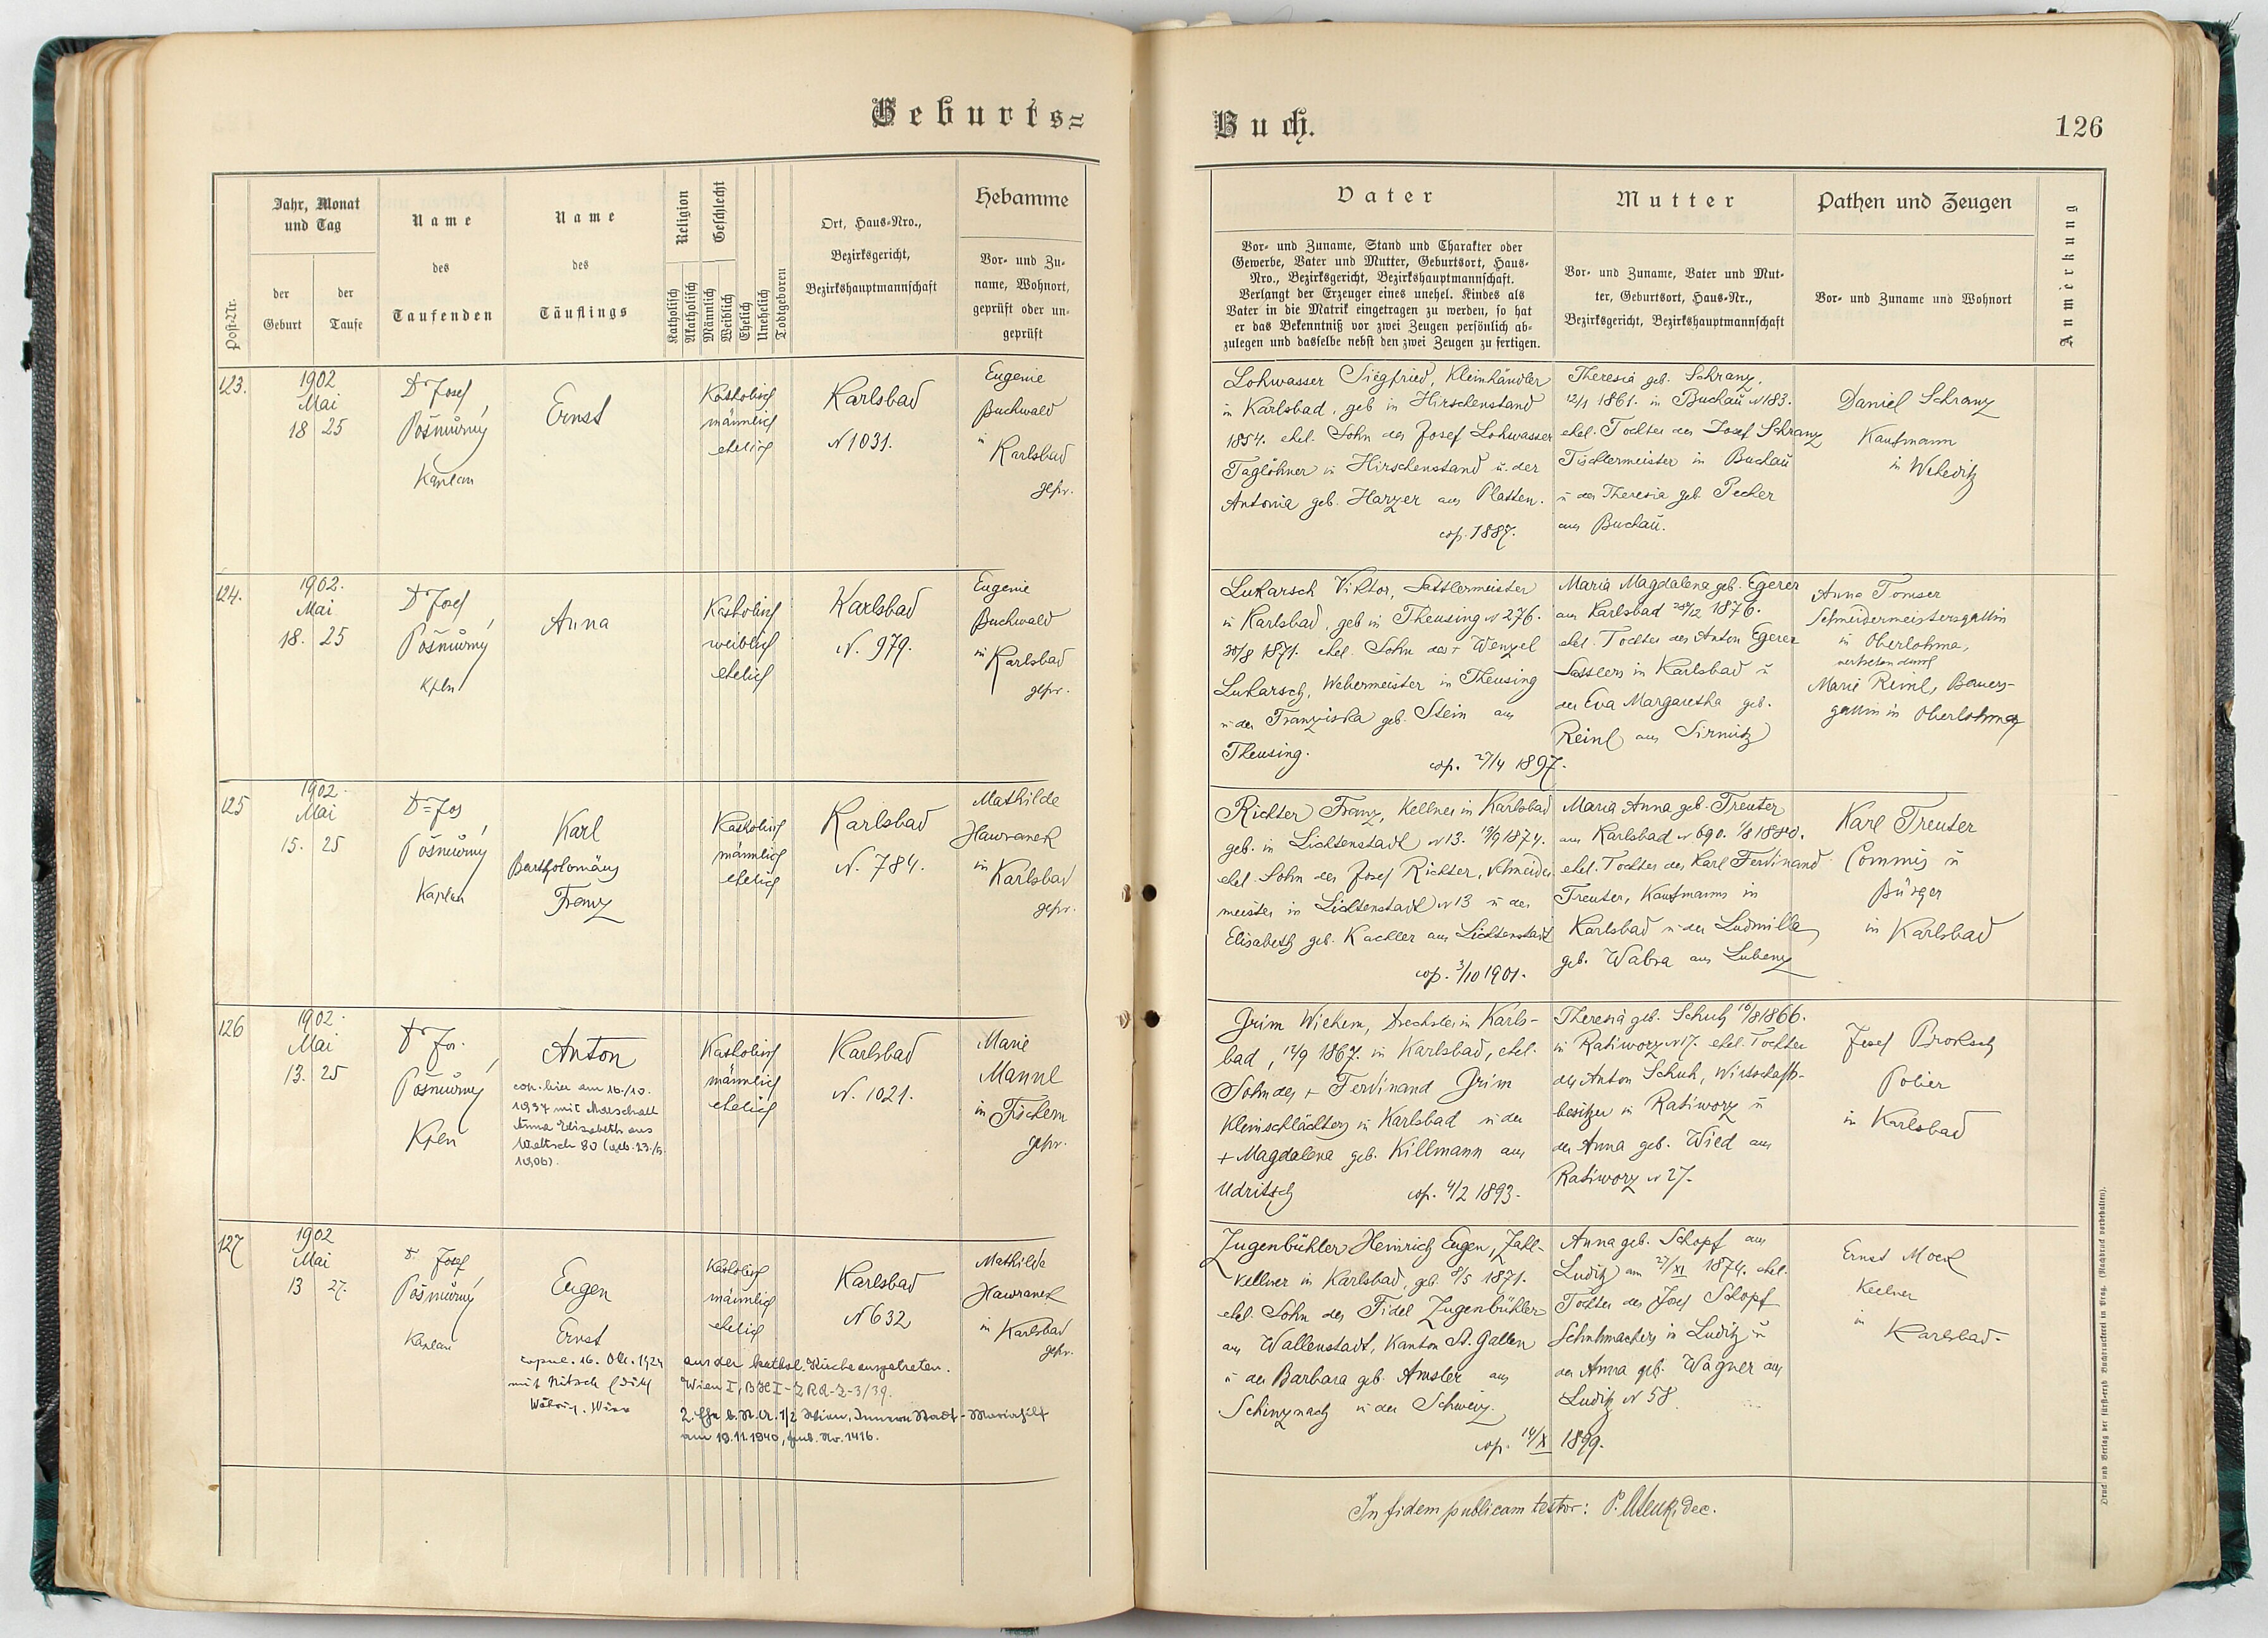 Geburts=
Jahr, Monat
und Tag
Name
des
Taufenden
Name
des
Täuflings
Religion
Geschlecht
Ort, Haus-Nro.,
Bezirksgericht,
Bezirkshauptmannschaft
Hebamme
Vor- und Zu-
name, Wohnort,
geprüft oder un-
geprüft
Post-Nr.
der
Geburt
der
Taufe
Katholisch
Akatholisch
Männlich
Weiblich
Ehelich
Unehelich
Todtgeboren
123.
1902
Mai
18 25
Dr Josef
Pošmůrný
Kaplan
Ernst
Katholisch
männlich
ehelich
Karlsbad
N 1031.
Eugenie
Buchwald
in
Karlsbad
gepr.
124.
1902.
Mai
18. 25
Dr Josef
Pošmůrný
Kpln
Anna
Katholisch
weiblich
ehelich
Karlsbad
N. 979.
Eugenie
Buchwald
in Karlsbad
gepr.
125
1902.
Mai
15. 25
Dr Jos
Pošmůrný
Kaplan
Karl
Bartholomäus
Franz
Katholisch
männlich
ehelich
Karlsbad
N. 784.
Mathilde
Hawranek
in
Karlsbad
gepr.
126
1902.
Mai
13. 25
Dr Jos.
Pošmůrný
Kpln
Anton
cop. hier am 16./10.
1937 mit Marschall
Anna Elisabeth aus
Waltsch 80 (geb. 23./5.
1906).
Katholisch
männlich
ehelich
Karlsbad
N. 1021.
Marie
Mannl
in Fischern
gepr.
127
1902
Mai
13 27.
Dr Josef
Pošmůrný
Kaplan
Eugen
Ernst
copul. 16. Okt. 1924
mit Nitsch Edith
Währing, Wien
Katholisch
männlich
ehelich
aus der kathol. Kirche ausgetreten.
Wien I, BH I-ZRA-Z-3/39.
2. Ehe b. St. A. 1/2 Wien, Innere Stadt - Mariahilf
am 19.11.1940, Fmb. Nr. 1416.
Karlsbad
N 632
Mathilde
Hawranek
in Karlsbad
gepr.
Buch.
126
Vater
Vor- und Zuname, Stand und Charakter oder
Gewerbe, Vater und Mutter, Geburtsort, Haus-
Nro., Bezirksgericht, Bezirkshauptmannschaft.
Verlangt der Erzeuger eines unehel. Kindes als
Vater in die Matrik eingetragen zu werden, so hat
er das Bekenntniß vor zwei Zeugen persönlich ab-
zulegen und dasselbe nebst den zwei Zeugen zu fertigen.
Mutter
Vor- und Zuname, Vater und Mut-
ter, Geburtsort, Haus-Nr.,
Bezirksgericht, Bezirkshauptmannschaft
Pathen und Zeugen
Vor- und Zuname und Wohnort
Anmerkung
Lohwasser Siegfried, Kleinhändler
in Karlsbad, geb in Hirschenstand
1854. ehel. Sohn des Josef Lohwasser
Taglöhner in Hirschenstand u. der
Antonia geb. Harzer aus Platten.
cop. 1887.
Theresia geb. Schranz,
12/1 1861. in Buchau N 183.
ehel. Tochter des Josef Schranz
Tischlermeister in Buchau
u der Theresia geb. Pecher
aus Buchau.
Daniel Schranz
Kaufmann
in Weheditz
Lukarsch Viktor, Sattlermeister
in Karlsbad, geb in Theusing N 276.
30/8 1871. ehel. Sohn des + Wenzel
Lukarsch, Webermeister in Theusing
u der Franziska geb. Stein aus
Theusing.
cop. 27/4 1897.
Maria Magdalena geb. Egerer
aus Karlsbad 28/12 1876.
ehel. Tochter des Anton Egerer
Sattlers in Karlsbad u
der Eva Margaretha geb.
Reinl aus Sirmitz
Anna Tomser
Schneidermeistersgattin
in Oberlohma,
vertreten durch
Marie Reinl, Bauers-
gattin in Oberlohma
Richter Franz, Kellner in Karlsbad
geb. in Lichtenstadt N 13. 19/9 1874.
ehel. Sohn des Josef Richter, Schneider
meister in Lichtenstadt N 13 u der
Elisabeth geb. Kachler aus Lichtenstadt
cop. 3/10 1901.
Maria Anna geb. Treuter
aus Karlsbad N 690. 1/8 1880.
ehel. Tochter des Karl Ferdinand
Treuter, Kaufmanns in
Karlsbad u der Ludmilla
geb. Wabra aus Lubenz
Karl Treuter
Commis u
Bürger
in Karlsbad
Grim Wilhem, Drechsler in Karls-
bad, 12/9 1867. in Karlsbad, ehel.
Sohn des + Ferdinand Grim
Kleinschlächters in Karlsbad u der
+ Magdalena geb. Killmann aus
Udritsch
cop. 4/2 1893.
Theresia geb. Schuh 16/8 1866.
in Ratiworz N 17. ehel. Tochter
des Anton Schuh, Wirtschafts-
besitzer in Ratiworz u
der Anna geb. Wied aus
Ratiworz N 27.
Josef Proksch
Polier
in Karlsbad
Zugenbühler Heinrich Eugen, Zahl-
kellner in Karlsbad, geb. 8/5 1871.
ehel. Sohn des Fidel Zugenbühler
aus Wallenstadt, Kanton St. Gallen
u der Barbara geb. Amsler aus
Schinznach in der Schweiz.
cop. 14/X 1899.
Anna geb. Schopf aus
Luditz am 27/XI 1874. ehel.
Tochter des Josef Schopf
Schuhmachers in Luditz u
der Anna geb. Wagner aus
Luditz N 58
Ernst Mock
Kellner
in
Karlsbad.
In fidem publicam testor: P. dec.
Druck und Verlag der fürst-erzb. Buchdruckerei in Prag. (Nachdruck vorbehalten).